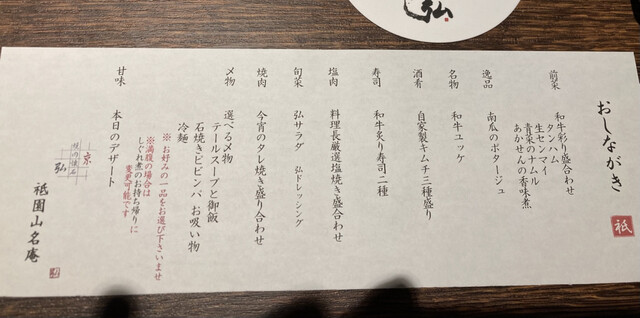 弘
おしながき
祇
前菜 和牛彩り盛合わせ
タンハム
生センマイ
青菜のナムル
あかせんの香味煮
逸品 南瓜のポタージュ
名物 和牛ユッケ
酒肴 自家製キムチ三種盛り
寿司 和牛炙り寿司二種
塩肉 料理長厳選塩焼き盛合わせ
旬菜 弘サラダ 弘ドレッシング
焼肉 今宵のタレ焼き盛り合わせ
〆物 選べる〆物
テールスープと御飯
石焼きビビンバ お吸い物
冷麺
※お好みの一品をお選び下さいませ
※満腹の場合は
しぐれ煮のお持ち帰りに
変更可能です
甘味 本日のデザート
京
弘
祇園山名庵